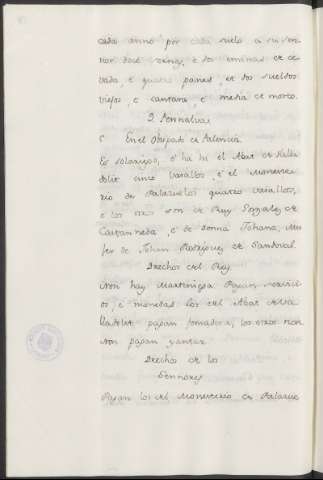 cada anno por cada suelo a su sen-
nor dose denes, e dos eminas de ce-
vada, e quatro panes, et dos sueldos
viejos, e cantara, e media de mosto.
Pennalva
En el Obispado de Palencia.
Es solariego, e ha hi el Abat de Valla-
dolit cinco vasallos, e el Moneste-
rio de Palazuelos quatro vasallos,
e los otros son de Ruy Gonzalez de
Castanneda, e de donna Johana, Mu-
jer de Johan Rodriguez de Sandoval.
Derechos del Rey
Non hay Martiniega Pagan servici-
os, e monedas los del Abat de Va-
lladolit pagan fonsadera, los otros non
Non pagan yantar.
Derechos de los
Sennores
Pagan los del Monesterio de Palazue-